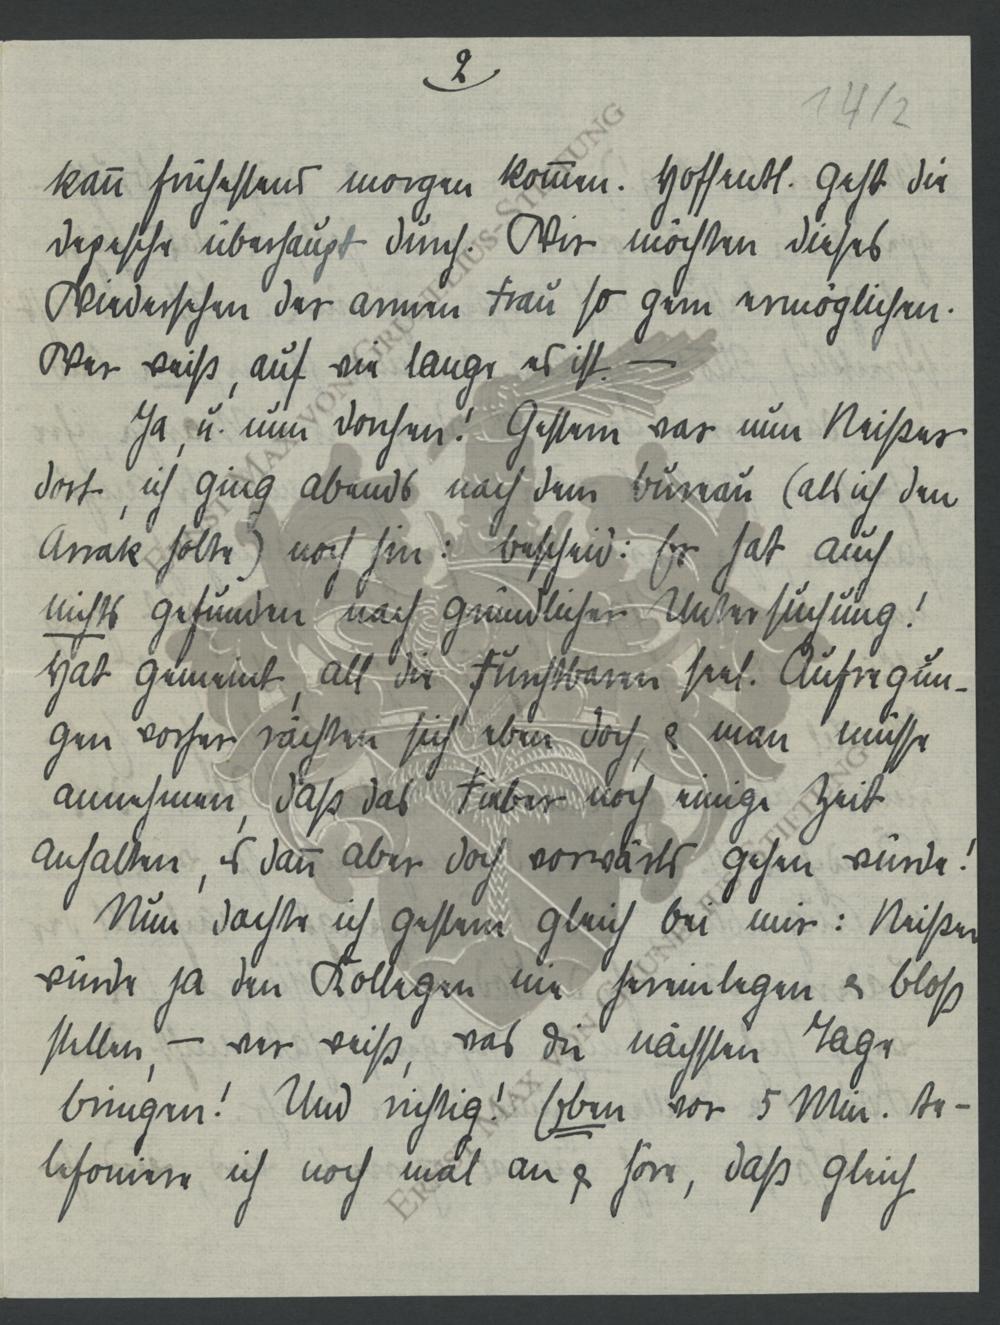 2
14/2
kañ frühestens morgen kom̄en. Hoffentl. geht die
Depesche überhaupt durch. Wir möchten dieses
Wiedersehen der armen Frau so gern ermöglichen.
Wer weiß, auf wie lange es ist. —
Ja, u. nun Dorchen! Gestern war nun Neißer
dort, ich ging abends nach dem Bureau (als ich den
Arrak holte) noch hin: Bescheid: Er hat auch
nichts gefunden nach gründlicher Untersuchung!
Hat gemeint, all die furchtbaren seel. Aufregun-
gen vorher rächten sich eben doch, & man müsse
annehmen, daß das Fieber noch einige Zeit
anhalten, es dañ aber doch vorwärts gehen würde!
Nun dachte ich gestern gleich bei mir: Neißer
würde ja den Kollegen nie hereinlegen & bloß
stellen, — wer weiß, was die nächsten Tage
bringen! Und richtig! Eben vor 5 Min. te-
lefoniere ich noch mal an & höre, daß gleich
ERNST MAX VON GRUNELIUS-STIFTUNG
ERNST MAX VON GRUNELIUS-STIFTUNG